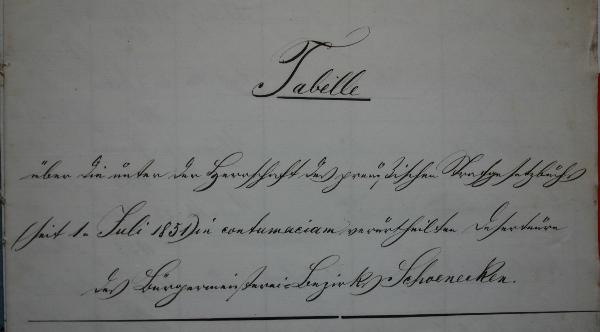 Tabelle
über die unter der Herrschaft des preußischen Strafgesetzbuchs
(seit 1n Juli 1851) in contumaciam verurtheilten Deserteure
des Bürgermeisterei-Bezirks Schoenecken.